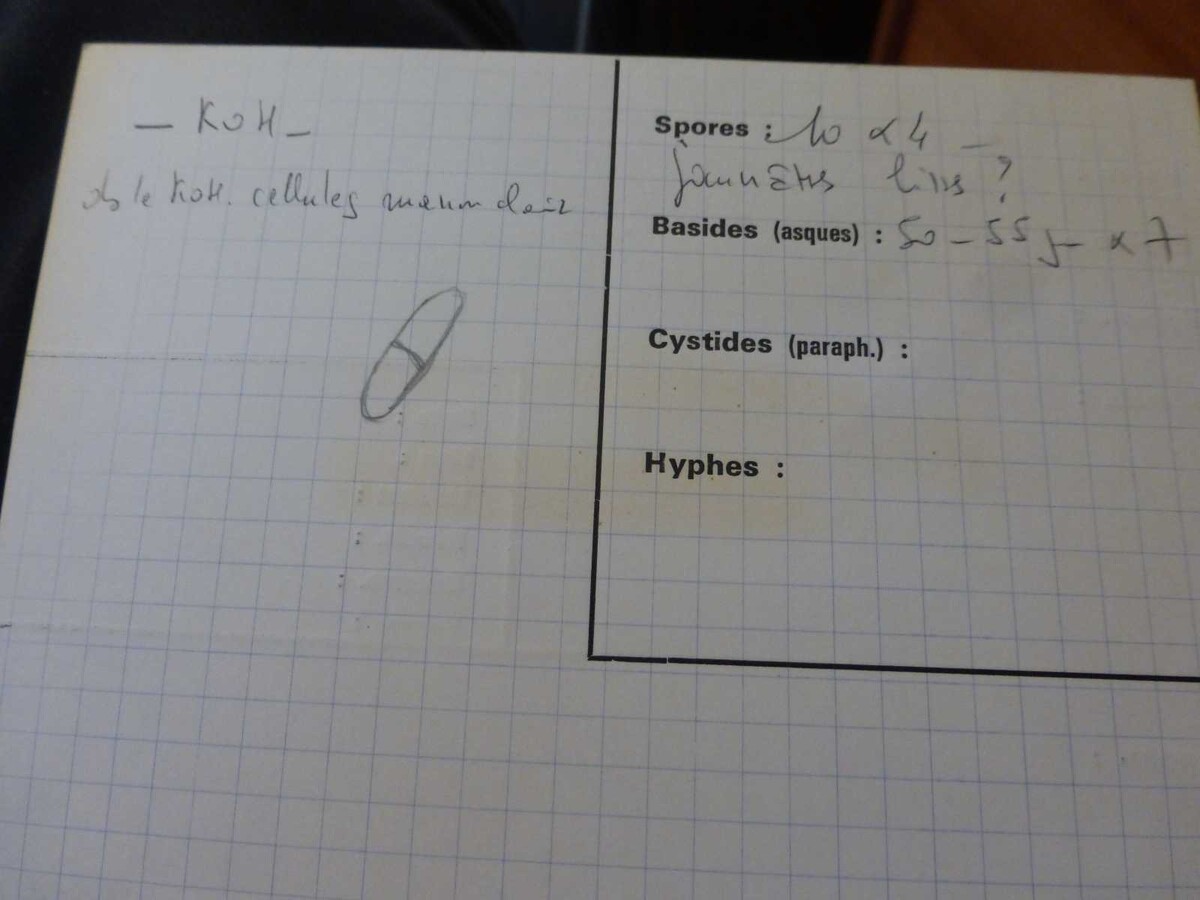 — KOH —
ds le KOH. cellules marron clair
Spores : 10 x 4 —
jaunâtres lisses ?
Basides (asques) : 50 – 55 µ x 7
Cystides (paraph.) :
Hyphes :